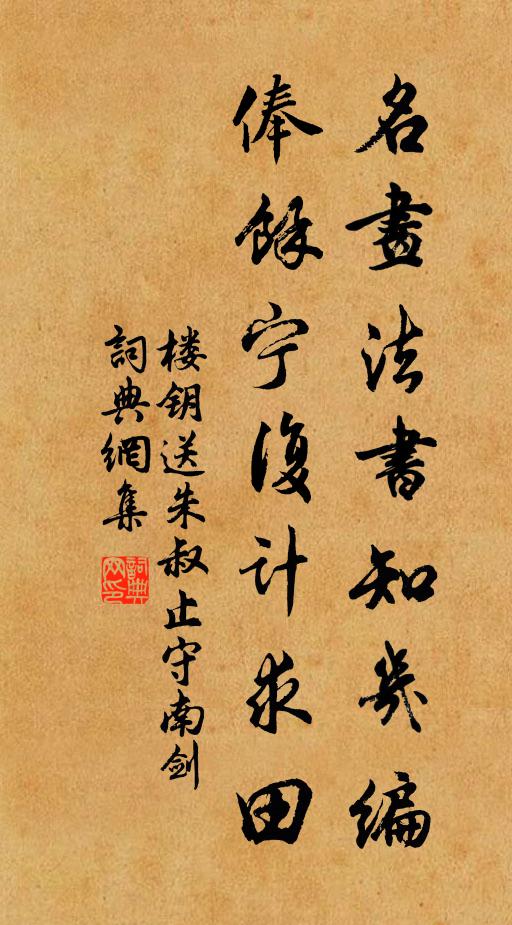 名畫法書知幾編
俸餘宁復计求田
楼钥送朱叔止守南剑
詞典網集
詞典網印